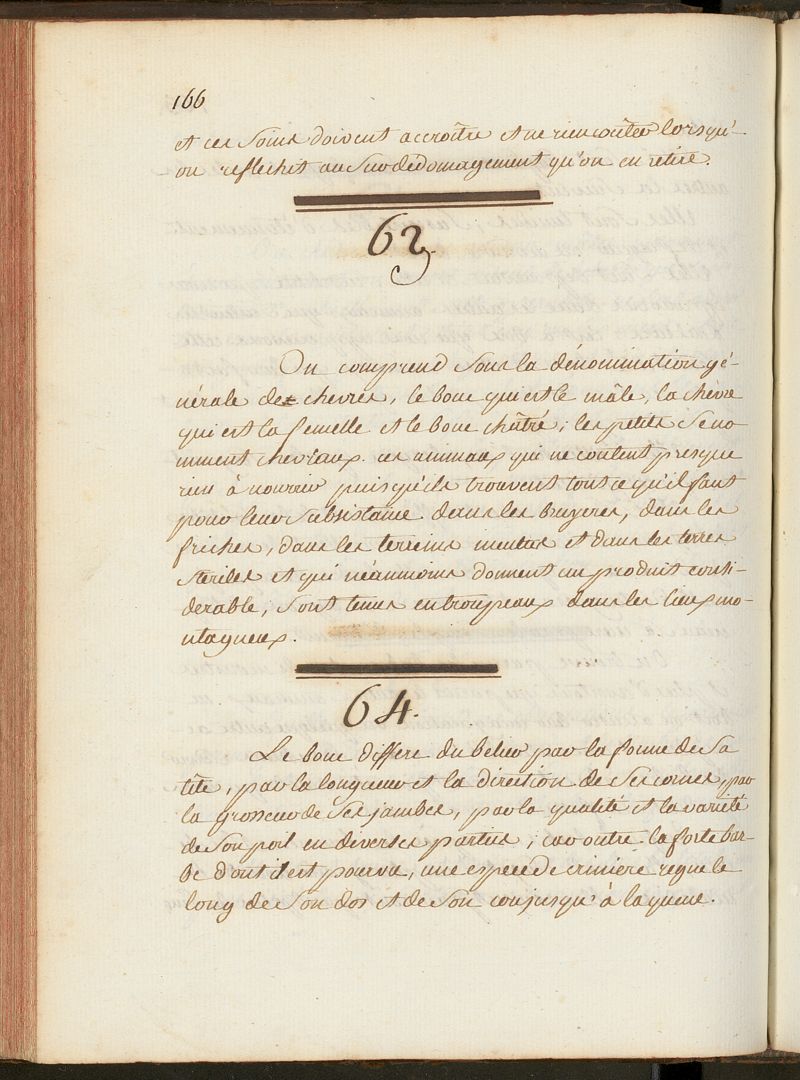 166
et ces soins doivent accroître et ne rien coûter lorsqu'
on reflechit au sur dédomagement qu'on en retire.
63.
On comprend sous la dénomination gé-
nérale de chevres, le bouc qui est le mâle, la chèvre
qui est la femelle et le bouc châtré; les petits se no-
mment chevraux. ces animaux qui ne coutent presque
rien à nourrir puisqu'ils trouvent tout ce qu'il faut
pour leur subsistance dans les bruyeres, dans les
friches, dans les terreins incultes et dans les terres
steriles et qui néanmoins donnent un produit consi-
derable, sont tenus en troupeaux dans les lieux mo-
ntagneux.
64.
Le bouc differe du belier par la forme de sa
tête, par la longueur et la direction de ses cornes, par
la grosseur de ses jambes, par la qualité et la varieté
de son poil en diverses parties; car outre la forte bar-
be dont il est pourvu, une espece de criniere regne le
long de son dos et de son cou jusqu'à la queue.